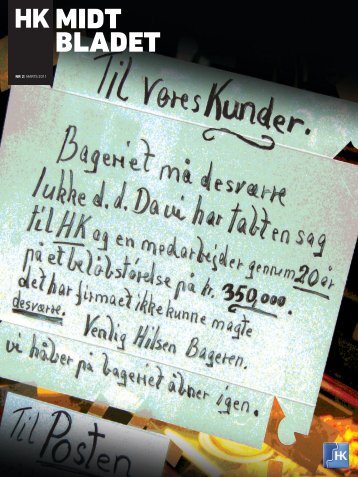 HK MIDT
BLADET
NR 2 | MARTS 2011
Til vores Kunder.
Bageriet må desværre
lukke d.d. Da vi har tabt en sag
til HK og en medarbejder gennum 20 år
på et beløbstørelse på kr. 350,000.
det har firmaet ikke kunne magte
desværre. Venlig Hilsen Bageren.
vi håber på bageriet åbner igen.
Til Posten
HK